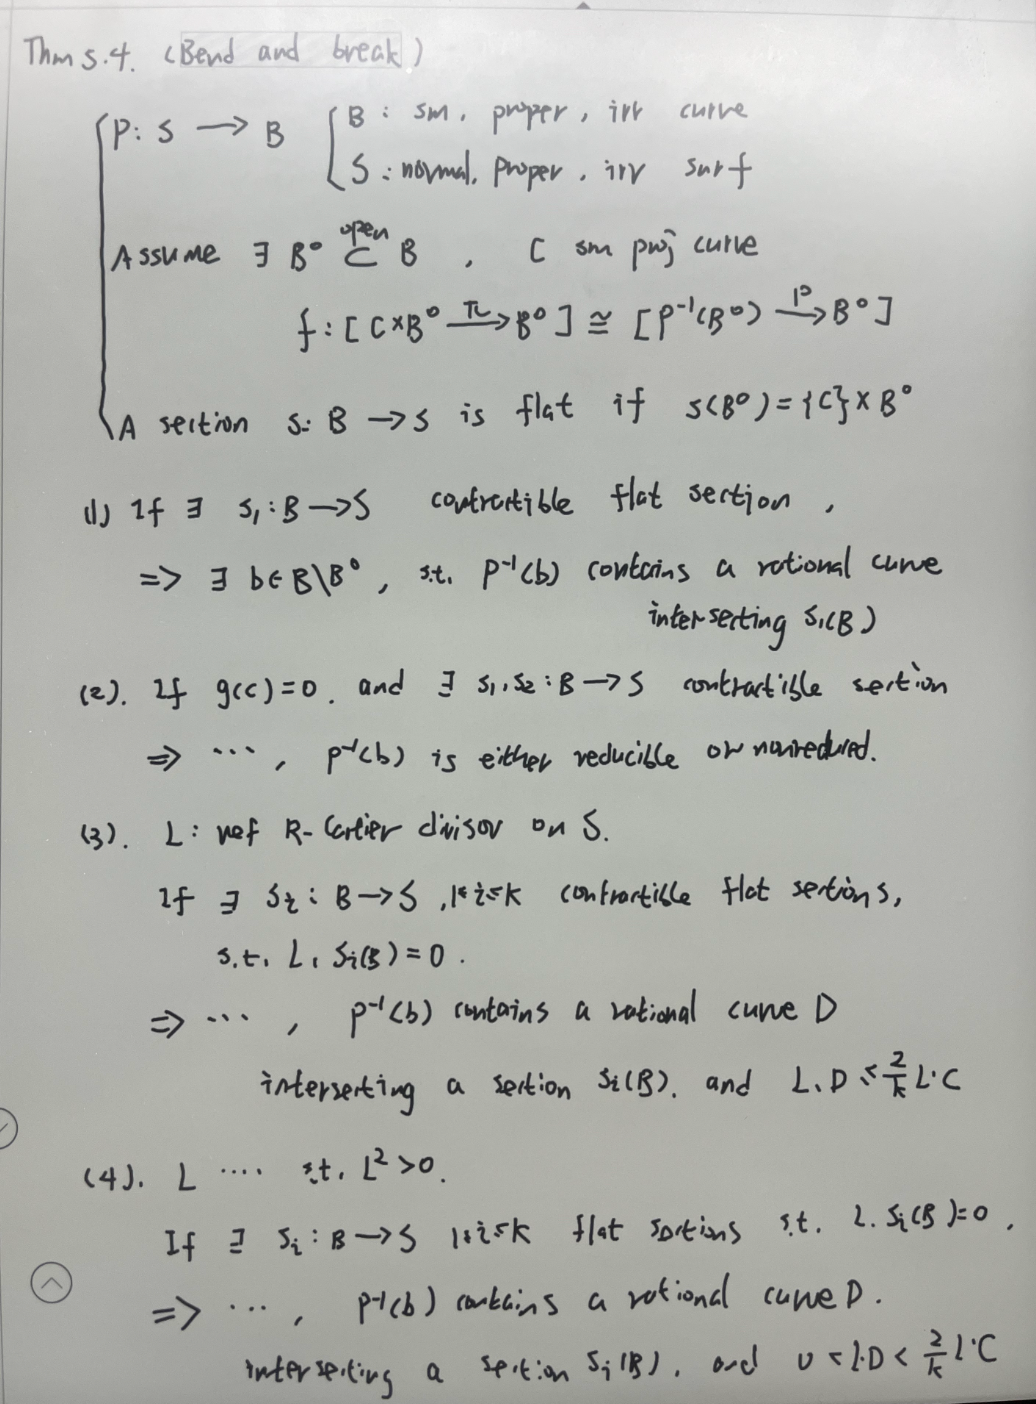 Thm 5.4. (Bend and break)
p: S → B { B : sm, proper, irr curve
S : normal, proper, irr surf
Assume ∃ B° ⊂^{open} B , C sm proj curve
f : [ C×B° →^{π} B° ] ≅ [ p⁻¹(B°) →^{p} B° ]
A section s: B → S is flat if s(B°) = {c} × B°
(1) If ∃ s₁ : B → S contractible flat section ,
=> ∃ b ∈ B\B° , s.t. p⁻¹(b) contains a rational curve
intersecting s₁(B)
(2). If g(C) = 0 , and ∃ s₁, s₂ : B → S contractible section
=> ... , p⁻¹(b) is either reducible or nonreduced.
(3). L : nef R-Cartier divisor on S.
If ∃ sᵢ : B → S , 1≤i≤k contractible flat sections,
s.t. L . sᵢ(B) = 0 .
=> ... , p⁻¹(b) contains a rational curve D
intersecting a section sᵢ(B), and L.D ≤ 2/k L·C
(4). L .... s.t. L² > 0.
If ∃ sᵢ : B → S 1≤i≤k flat sections s.t. L. sᵢ(B) = 0 ,
=> ... , p⁻¹(b) contains a rational curve D.
intersecting a section sᵢ(B), and 0 < L·D < 2/k L·C